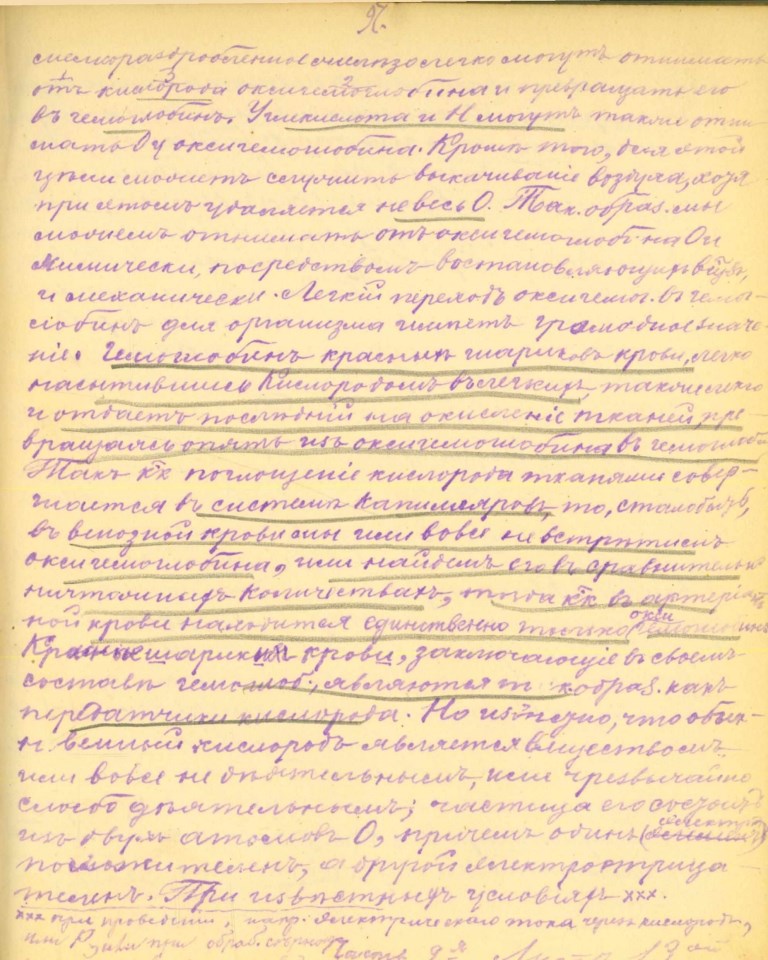 97.
мелкораздробленное железо легко могутъ отнимать
отъ кислорода оксигемоглобина и превращать его
въ гемоглобинъ. Углекислота и Н могутъ также отни-
мать О у оксигемоглобина. Кромѣ того, для этой
цѣли можетъ служить выкачиваніе воздуха, хотя
при этомъ удаляется не весь О. Так. образ. мы
можемъ отнимать отъ оксигемоглобина О и
химически, посредствомъ востановляющихъ вещвъ,
и механически. Легкій переходъ оксигемог. въ гемо-
глобинъ для организма имѣетъ громадное значе-
ніе. Гемоглобинъ красныхъ шариковъ крови, легко
насытившись кислородомъ въ легкихъ, также легко
и отдаетъ послѣдній на окисленіе тканей, пре-
вращаясь опять изъ оксигемоглобина въ гемоглоб
Такъ кк поглощеніе кислорода тканями совер-
шается въ системѣ капилляровъ, то, сталобыть,
въ венозной крови мы или вовсе не встрѣтимъ
оксигемоглобина, или найдемъ его въ сравнительно
ничтожныхъ количествахъ, тогда кк въ артеріаль
ной крови находится единственно только окси гемоглобинъ
Красные шарики крови, заключающіе въ своемъ
составѣ гемоглоб., являются т. к. образ. какъ
передатчики кислорода. Но извѣстно, что обык-
н венный кислородъ является веществомъ
или вовсе не дѣятельнымъ, или чрезвычайно
слабо дѣятельнымъ; частица его состоитъ
изъ двухъ атомовъ О, причемъ одинъ (электро)
положителенъ, а другой электроотрица-
теленъ. При извѣстныхъ условіяхъ ххх.
ххх при проведеніи, напр. электрическаго тока черезъ кислородъ,
или при обраб.
Часть 9-я Листъ 13ой